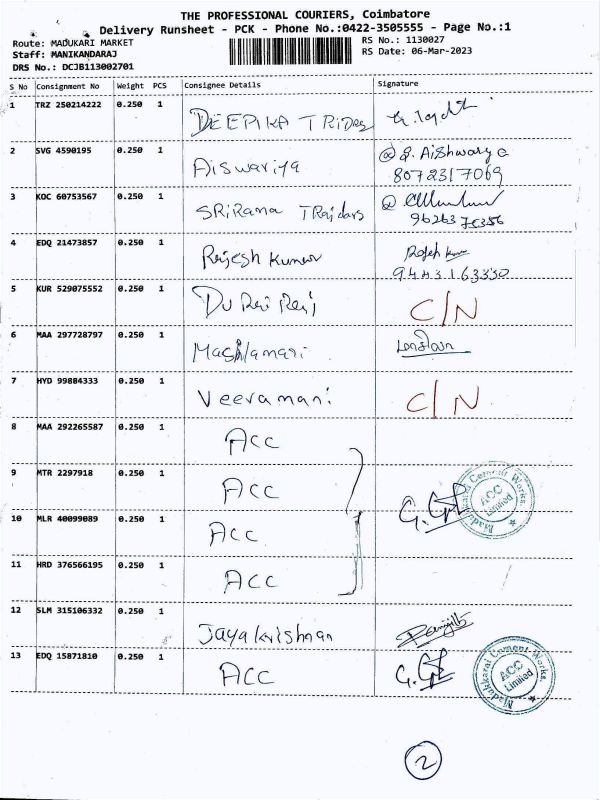 THE PROFESSIONAL COURIERS, Coimbatore
Delivery Runsheet - PCK - Phone No.:0422-3505555 - Page No.:1
Route: MADUKARI MARKET RS No.: 1130027
Staff: MANIKANDARAJ RS Date: 06-Mar-2023
DRS No.: DCJB113002701
S No Consignment No Weight PCS Consignee Details Signature
1 TRZ 250214222 0.250 1 DEEPIKA TRIDers
2 SVG 4590195 0.250 1 Aiswariya @ S. Aishwarya
8072317069
3 KOC 60753567 0.250 1 SRiRama TRaidars @
9626376356
4 EDQ 21473857 0.250 1 Rajesh Kumar Rajesh Kumar
9443163330
5 KUR 529075552 0.250 1 DuRai Raj C/N
6 MAA 297728797 0.250 1 Masilamari
7 HYD 99884333 0.250 1 Veeramani C/N
8 MAA 292265587 0.250 1 ACC
9 MTR 2297918 0.250 1 ACC
Madukkarai Cement Works. ACC Limited
10 MLR 40099089 0.250 1 ACC
11 HRD 376566195 0.250 1 ACC
12 SLM 315106332 0.250 1 Jayakrishnan Ranjith
13 EDQ 15871810 0.250 1 ACC
Madukkarai Cement Works. ACC Limited
2